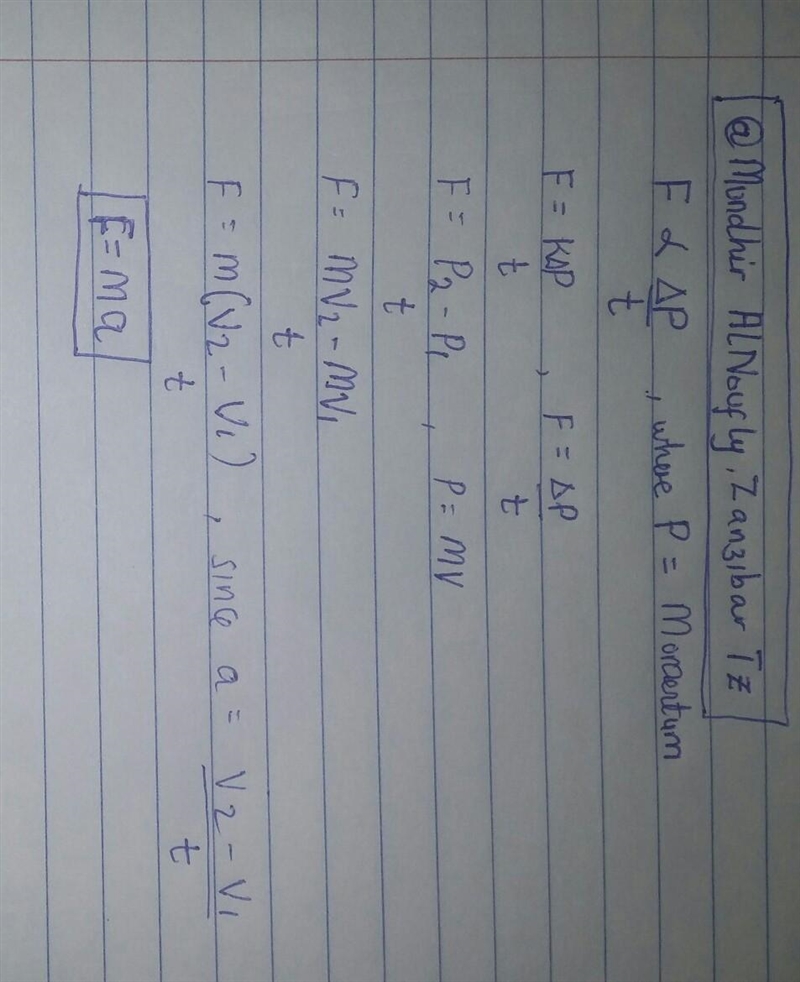 @Mundhir AlNoufly, Zanzibar Tz
F α ΔP/t , where P = Momentum
F = KΔP/t , F = ΔP/t
F = P₂ - P₁/t , P = MV
F = MV₂ - MV₁/t
F = m(V₂ - V₁)/t , since a = V₂ - V₁/t
F = Ma